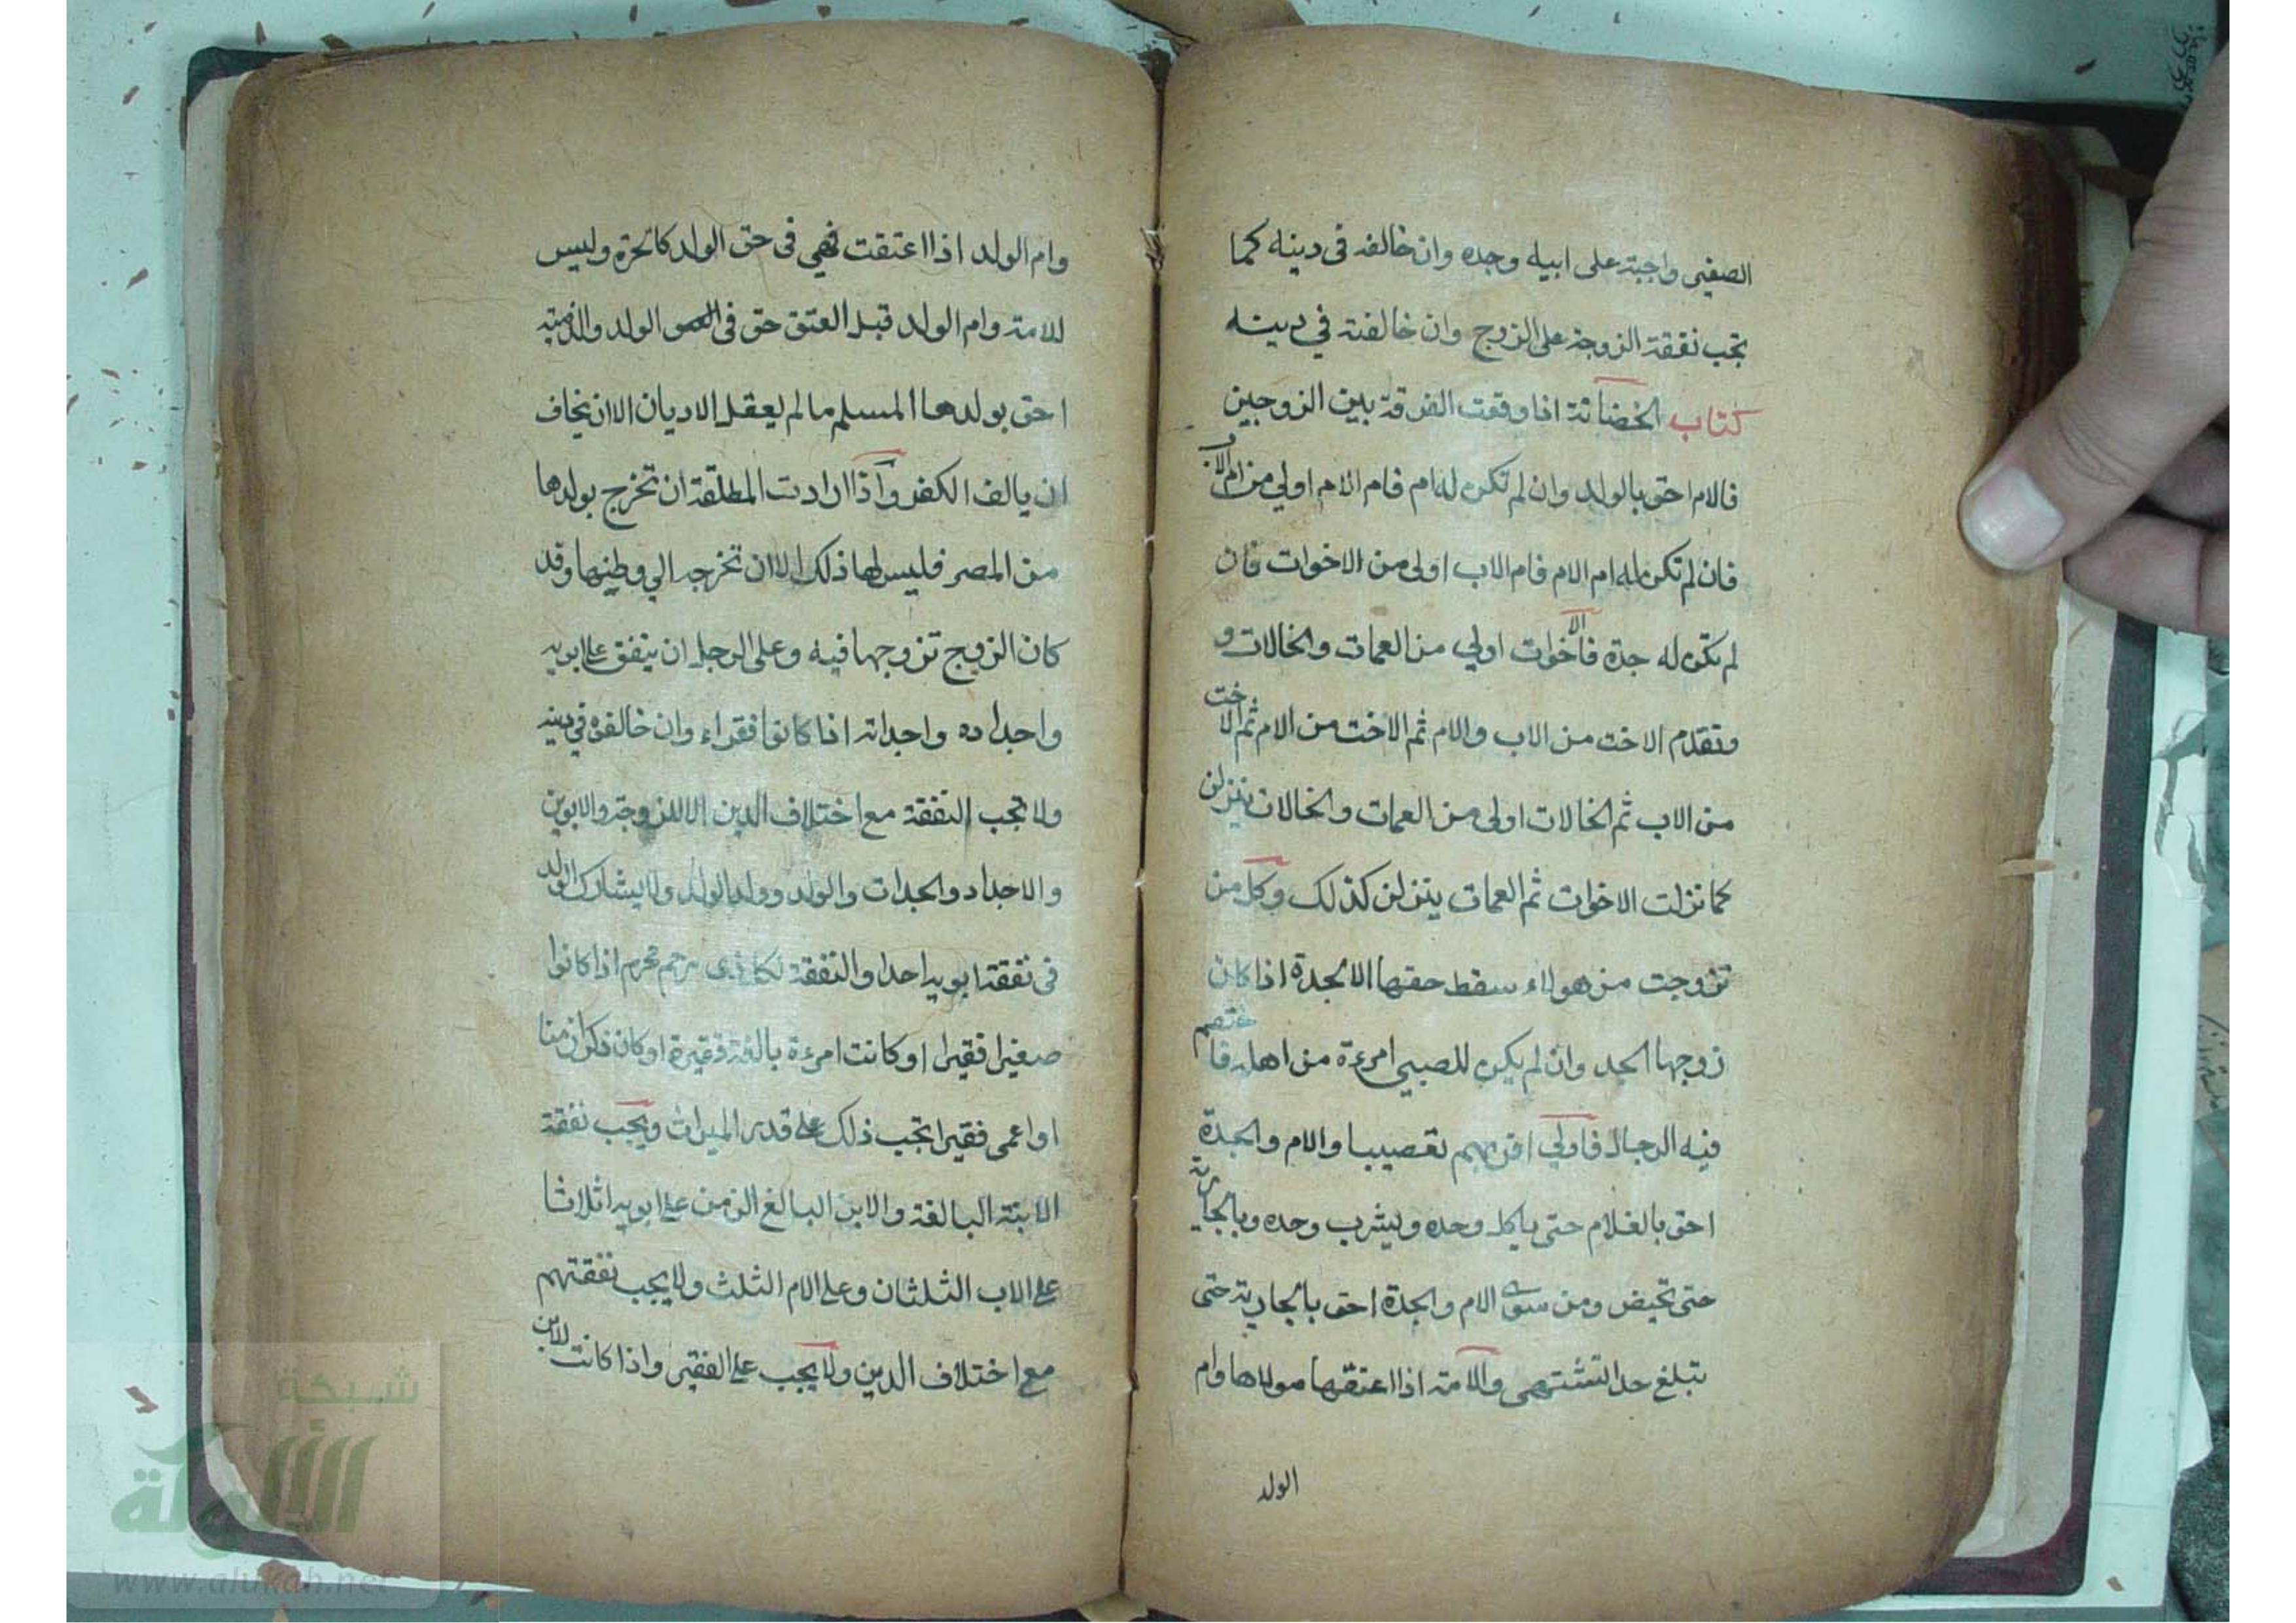 الصغير واجبة على ابيه وجده وان خالفه فى دينه كما
تجب نفقة الزوجة على الزوج وان خالفته في دينه
كتاب الحضانة اذا وقعت الفرقة بين الزوجين
فالام احق بالولد وان لم تكن له ام فام الام اولي من ام الاب
فان لم تكن له ام الام فام الاب اولى من الاخوات فان
لم تكن له جدة فالاخوات اولي من العمات والخالات و
وتقدم الاخت من الاب والام ثم الاخت من الام ثم الاخت
من الاب ثم الخالات اولى من العمات والخالات ينزلن
كما نزلت الاخوات ثم العمات ينزلن كذلك وكل من
تزوجت من هولاء سقط حقها الا الجدة اذا كان
زوجها الجد وان لم يكن للصبي امرءة من اهله فاختصم
فيه الرجال فاولي اقربهم تعصيبا والام والجدة
احق بالغلام حتى ياكل وحده ويشرب وحده وبالجارية
حتى تحيض ومن سوى الام والجدة احق بالجارية حتى
تبلغ حد التشتهى والامة اذا اعتقها مولاها وام
الولد
وام الولد اذا اعتقت فهي فى حق الولد كالحرة وليس
للامة وام الولد قبل العتق حق فى الولد والذمية
احق بولدها المسلم مالم يعقل الاديان الا ان يخاف
ان يالف الكفر واذا ارادت المطلقة ان تخرج بولدها
من المصر فليس لها ذلك الا ان تخرجه الي وطنها وقد
كان الزوج تزوجها فيه وعلى الرجل ان ينفق على ابويه
واجداده واجداته اذا كانوا فقراء وان خالفوه في دينه
ولا تجب النفقة مع اختلاف الدين الا للزوجة والابوين
والاجداد والجدات والولد وولد الولد ولا يشارك الولد
فى نفقة ابويه احد والنفقة لكل ذى رحم محرم اذا كانوا
صغيرا فقيرا او كانت امرءة بالغة فقيرة او كان ذكرا زمنا
او اعمى فقيرا تجب ذلك على قدر الميراث ويجب نفقة
الابنة البالغة والابن البالغ الزمن على ابويه اثلاثا
على الاب الثلثان وعلى الام الثلث ولا يجب نفقتهم
مع اختلاف الدين ولا يجب على الفقير واذا كانت للابن
شبكة
الألوكة
www.alukah.net